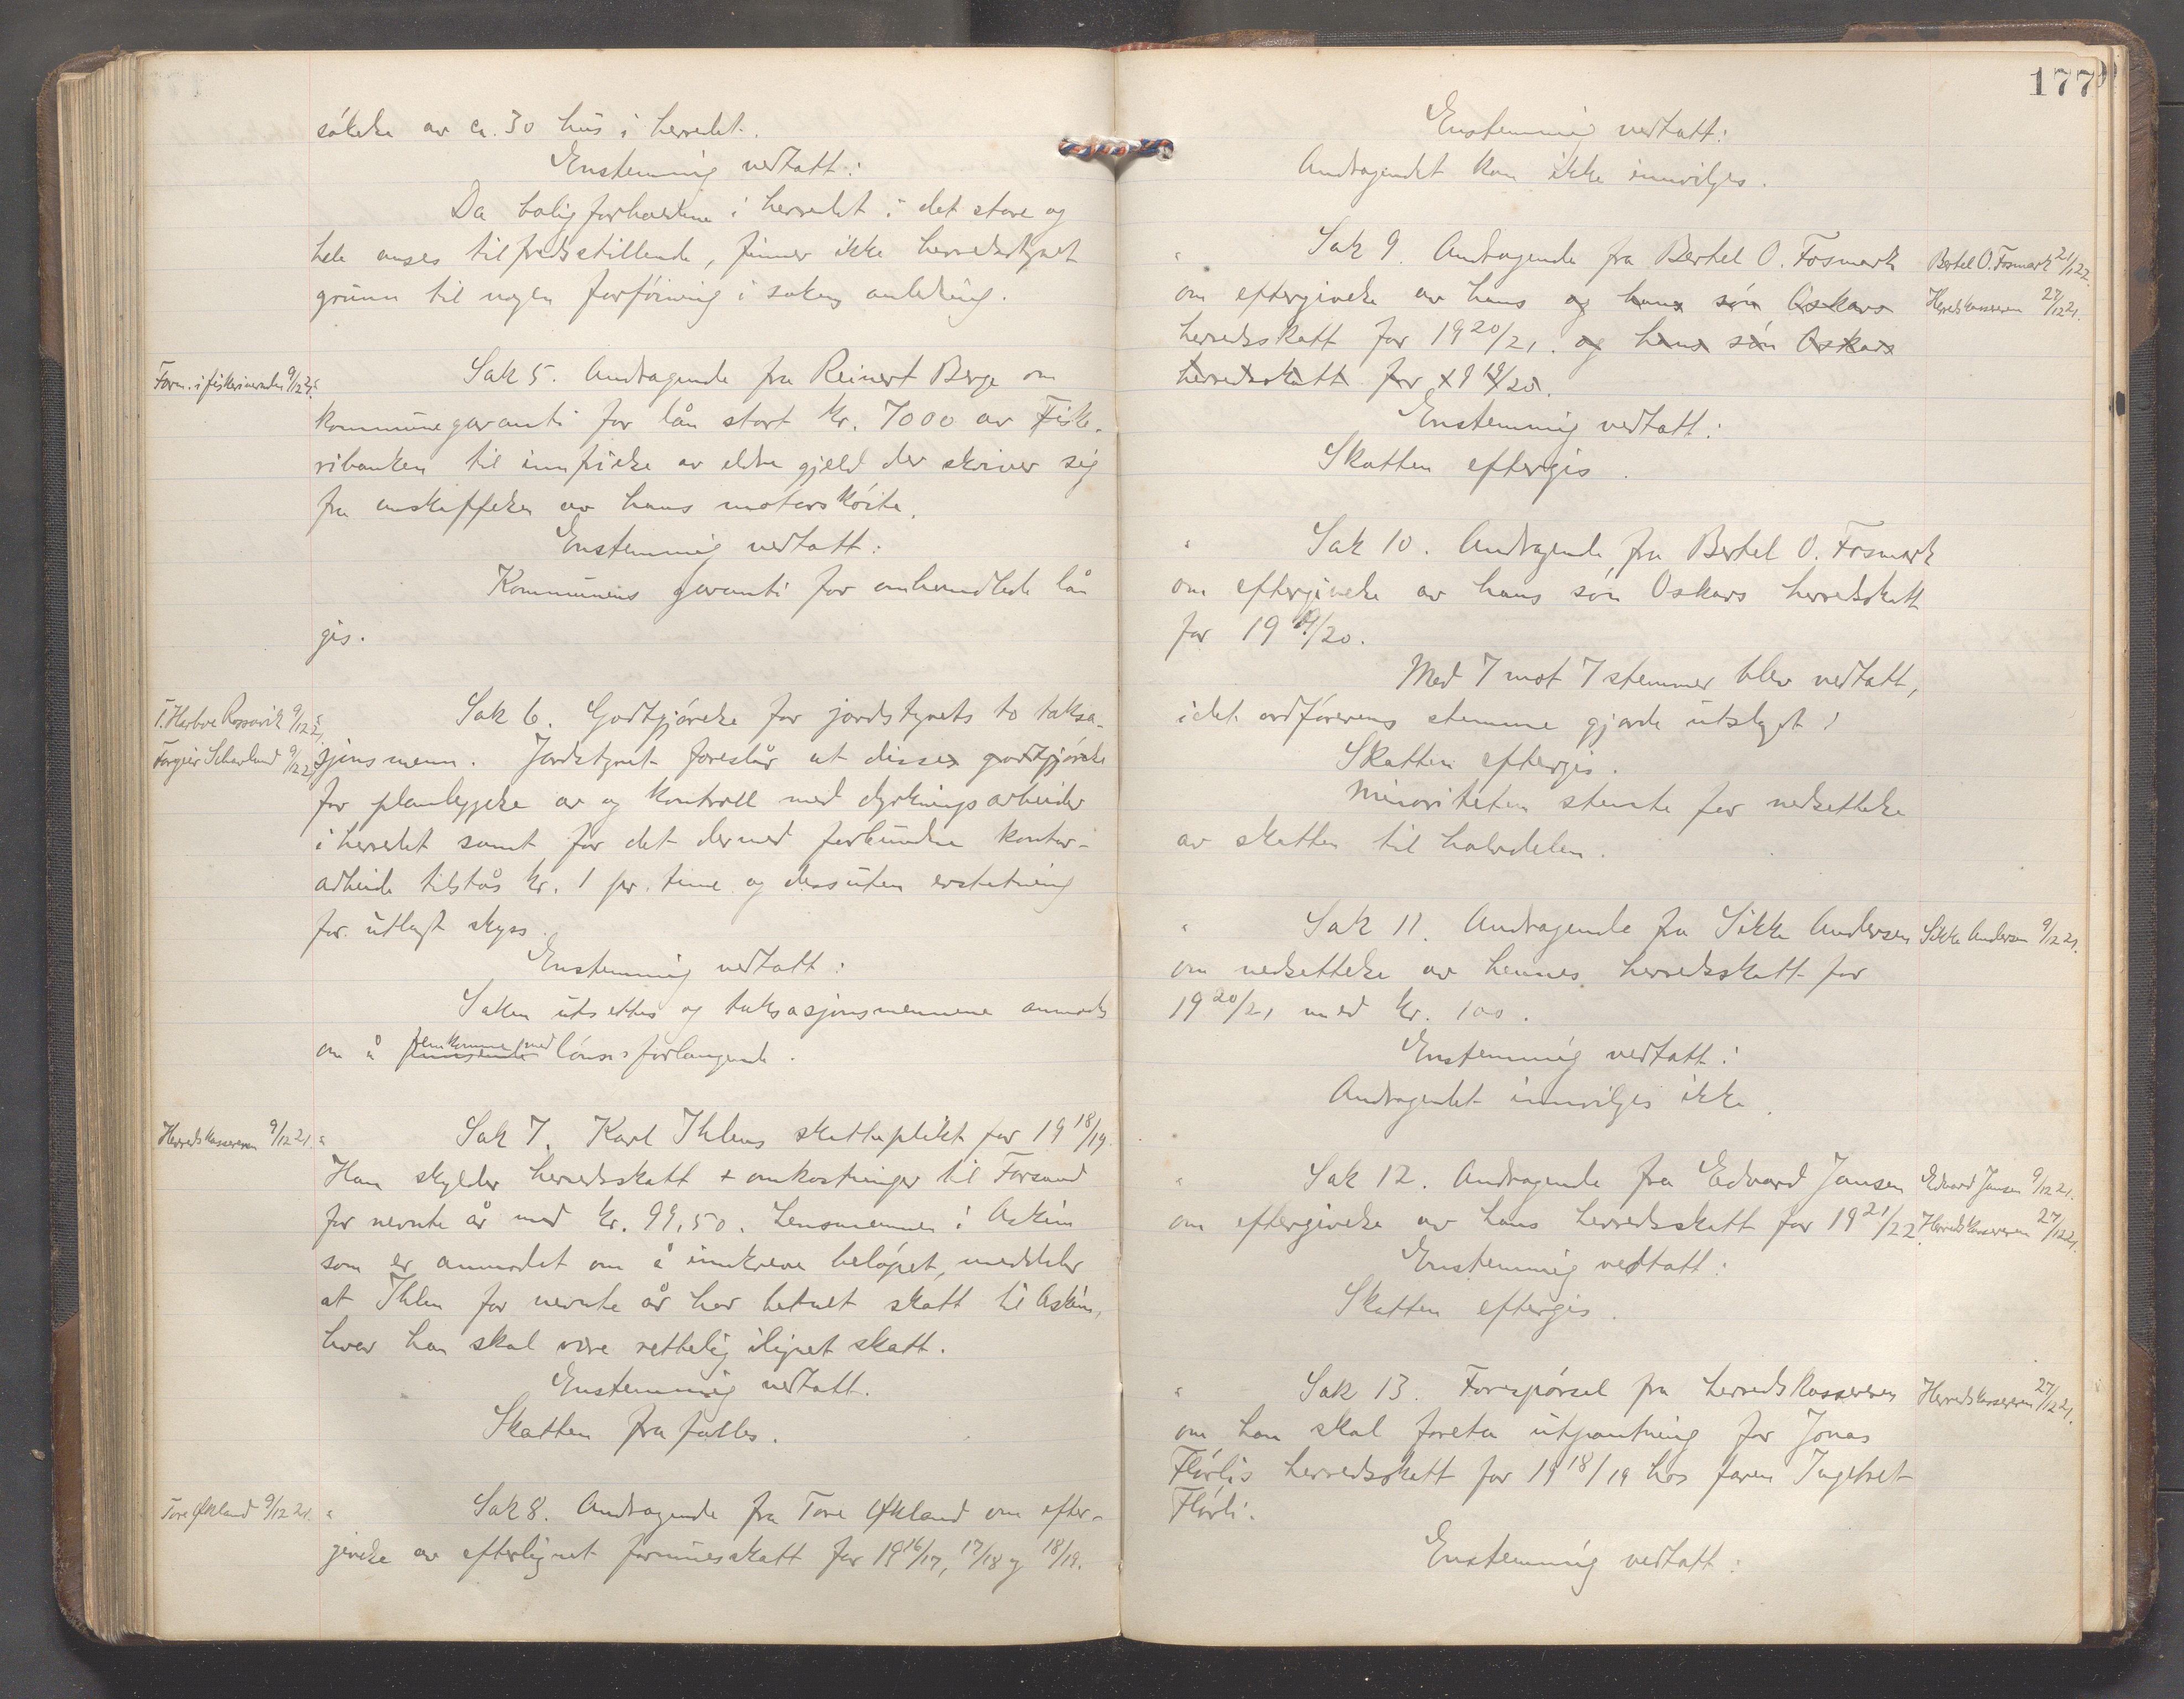 søkelse av ca. 30 hus i herredet.
Enstemmig vedtatt:
Da boligforholdene i herredet i det store og
hele anses tilfredsstillende, finner ikke herredsstyret
grunn til nogen forføining i sakens anledning.
Form. i fiskerinemnden 9/12 21. "
Sak 5. Andragende fra Reinert Berge om
kommunegaranti for lån stort kr. 7000 av Fiske-
ribanken til innfrielse av eldre gjeld der skriver sig
fra anskaffelsen av hans motorskøite.
Enstemmig vedtatt:
Kommunens garanti for omhandlede lån
gis.
T. Herbve Rossavik 9/12 21. "
Torgeir Scheveland 9/12 21.
Sak 6. Godtgjørelse for jordstyrets to taksa-
sjonsmenn. Jordstyret foreslår at disses godtgjørelse
for planleggelse av og kontroll med dyrkningsarbeider
i herredet samt for det dermed forbundne kontor-
arbeide tilstås kr. 1 pr. time og dessuten erstatning
for utlagt skyss.
Enstemmig vedtatt:
Saken utsettes og taksasjonsmennene anmodes
om å fremkomme med lønnsforlangende.
Herredskassereren 9/12 21. "
Sak 7. Karl Ihlens skatteplikt for 1918/19.
Han skylder herredsskatt + omkostninger til Forsand
for nevnte år med kr. 99,50. Lensmannen i Askim
som er anmodet om å innkreve beløpet, meddeler
at Ihlen for nevnte år har betalt skatt til Askim,
hvor han skal være rettelig ilignet skatt.
Enstemmig vedtatt.
Skatten frafalles.
Tore Økland 9/12 21. "
Sak 8. Andragende fra Tore Økland om efter-
givelse av efterlignet formuesskatt for 1916/17, 17/18 og 18/19.
177
Enstemmig vedtatt:
Andragendet kan ikke innvilges.
" Sak 9. Andragende fra Bertel O. Fosmark
Bertel O. Fosmark 21/1 22.
om eftergivelse av hans og hans søn Oskars
Herredskassereren 27/12 21.
herredsskatt for 1920/21. og hans søn Oskars
herredsskatt for 1919/20.
Enstemmig vedtatt:
Skatten eftergis.
" Sak 10. Andragende fra Bertel O. Fosmark
om eftergivelse av hans søn Oskars herredsskatt
for 1919/20.
Med 7 mot 7 stemmer blev vedtatt,
idet ordførerens stemme gjorde utslaget:
Skatten eftergis.
Minoriteten stemte for nedsettelse
av skatten til halvdelen.
" Sak 11. Andragende fra Sikke Andersen
Sikke Andersen 9/12 21.
om nedsettelse av hennes herredsskatt for
1920/21 med kr. 100.
Enstemmig vedtatt:
Andragendet innvilges ikke.
" Sak 12. Andragende fra Edvard Jansen
Edvard Jansen 9/12 21.
om eftergivelse av hans herredsskatt for 1921/22.
Herredskassereren 27/12 21.
Enstemmig vedtatt:
Skatten eftergis.
" Sak 13. Forespørsel fra herredskassereren
Herredskassereren 27/12 21.
om han skal foreta utpantning for Jonas
Flørlis herredsskatt for 1918/19 hos faren Ingebret
Flørli.
Enstemmig vedtatt: